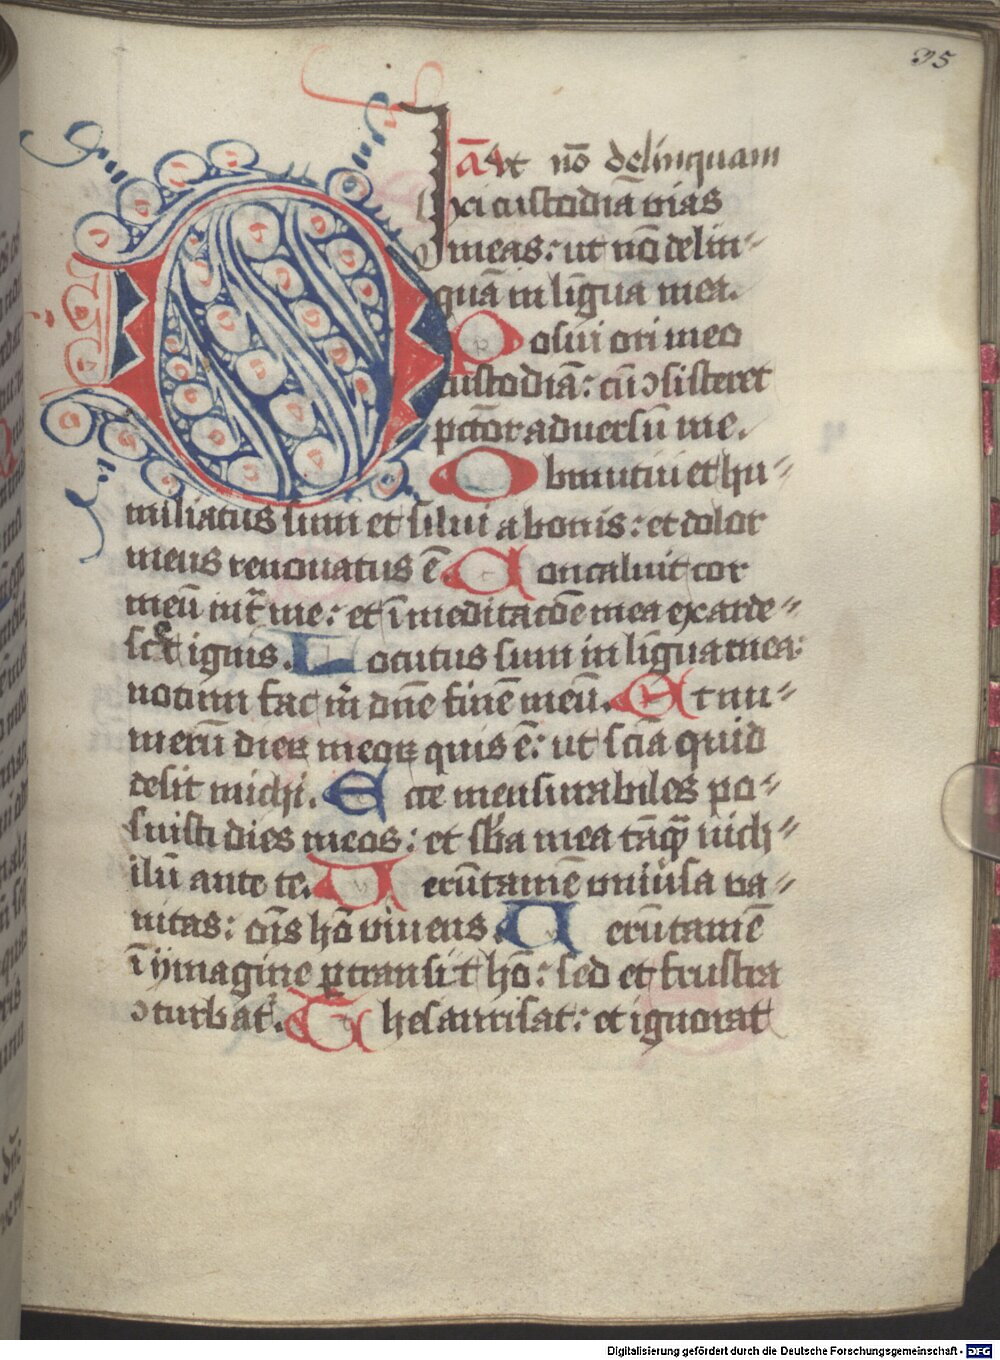 35
añ Ut nō delinquam
D ixi custodiā vias
meas: ut nō delin⸗
quā in līgua mea.
P osui ori meo
custodiā: cū ↄsisteret
pctōr adversū me.
O bmutui et hu⸗
miliatus sum et silui a bonis: et dolor
meus renovatus ē. C oncaluit cor
meū int̄ me: et ī meditacōe mea exarde⸗
scet ignis. L ocutus sum in līgua mea:
notum fac m̄ dn̄e finē meū. E t nu⸗
merū dieꝝ meoꝝ quis ē: ut sciā quid
desit michi. E cce mensurabiles po⸗
suisti dies meos: et sb̄a mea tāq̄ nich⸗
ilū ante te. V erūtamē univ̄sa va⸗
nitas: om̄s hō vivens. V erūtamē
ī ymagine ꝑtransit hō: sed et frustra
ↄturbat͛. T hesaurisat: et ignorat
Digitalisierung gefördert durch die Deutsche Forschungsgemeinschaft - DFG